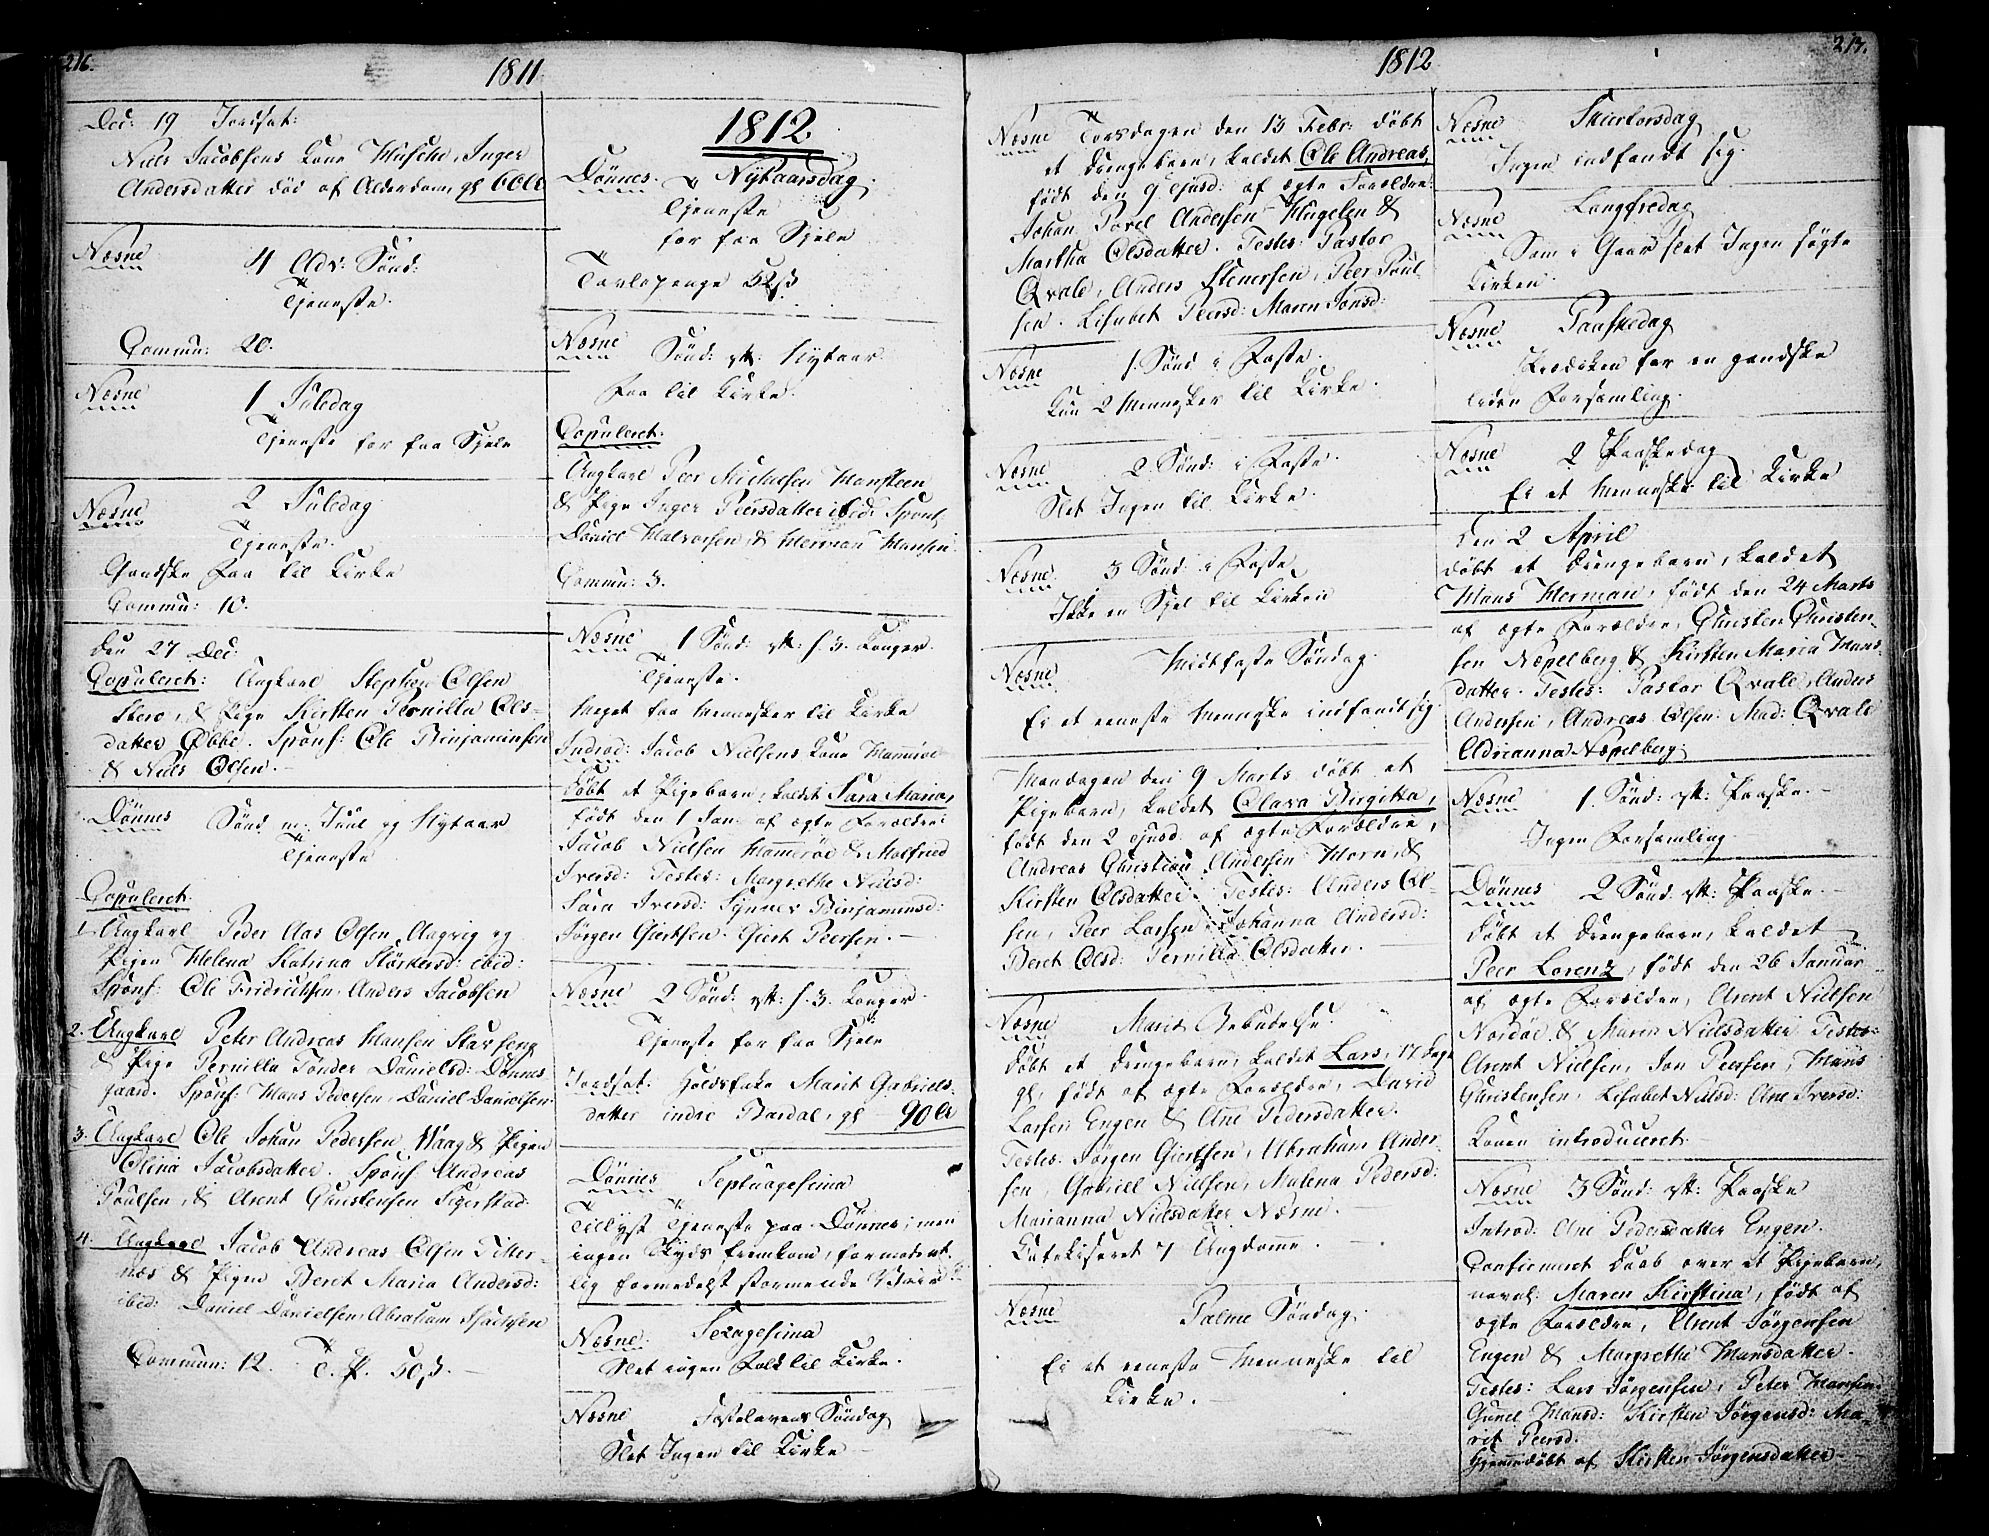 216.
1811
Dec: 19 Jordsat:
Niels Jacobsens Kone Husche, Inger
Andersdatter død af Alderdom, gl 60 Ar
Næsne
4 Adv: Sønd:
Tjeneste.
Commu: 20.
Næsne
1 Juledag
Tjeneste for faa Sjele
Næsne
2 Juledag
Tjeneste.
Gandske faa til Kirke
Commu: 10.
den 27 Dec:
Copuleret: Ungkarl Stephen Olsen
& Pige Kirsten Pernilla Ols-
datter Øbbe. Sponf: Ole Binjaminsen
& Niels Olsen.
Dønnes
Sønd. m: Juul og Nytaar
Tjeneste
Copuleret.
1. Ungkarl Peder Aas Olsen Augvig og
Pigen Helena Katrina Størkersd: ibid:
Sponf: Ole Fridrichsen, Anders Jacobsen
2. Ungkarl Peter Andreas Hansen Skarseng
& Pige Pernilla Tønder Danielsd: Dønnes
gaard. Sponf: Hans Pedersen, Daniel Danielsen.
3. Ungkarl Ole Johan Pedersen Waag & Pigen
Olina Jacobsdatter. Sponf: Andreas
Poulsen, & Arent Christensen Sigerstad.
4. Ungkarl Jacob Andreas Olsen Titter-
næs & Pigen Beret Maria Andersd:
ibid: Daniel Danielsen, Abraham Isachsen
Commun: 12. T. P. 50 ß.
1812.
Dønnes. Nytaarsdag.
Tjeneste
for faa Sjele
Tavlepenge 52 ß
Næsne
Sønd: eft: Nytaar
Faa til Kirke.
Copuleret:
Ungkarl Peer Michelsen Hansteen
& Pige Inger Peersdatter ibid: Sponf:
Daniel Halvorsen, & Herman Hansen.
Commu: 3.
Næsne 1 Sønd: eft: h. 3. Konger.
Tjeneste.
Meget faa Mennesker til Kirke
Introd: Jacob Nielsens Kone Hamnøe
Døbt et Pigebarn, kaldet Sara Maria,
født den 1 Jan: af ægte Forældre:
Jacob Nielsen Hamnøe & Malfried
Iversd: Testes: Margrethe Nielsd:
Sara Iversd: Synnev Binjaminsd:
Jørgen Giertsen. Giert Peersen.
Næsne 2 Sønd: eft: h. 3. Konger.
Tjeneste for faa Sjele
Jordsat: Huusfake Marit Gabriels-
datter indre Bardal, gl 90 Ar
Dønnes Septuagesima
Tillyst Tjeneste paa Dønnes; men
ingen Skyds fremkom, formodent-
lig formedelst stormende Veir.
Næsne. Sexagesima
Slet ingen Folk til Kirke.
Næsne Fastelavens Søndag
Slet Ingen til Kirke
1812
217.
Næsne Torsdagen den 13 Febr: døbt
et Drengebarn, kaldet Ole Andreas,
født den 9 ejusd: af ægte Forældre:
Johan Povel Andersen Hugelen &
Martha Olsdatter. Testes: Pastor
Qvale, Anders Stenersen, Peer Poul-
sen. Lisabet Peersd: Maren Jonsd:
Næsne 1. Sønd: i Faste.
Kun 2 Mennesker til Kirke.
Næsne 2 Sønd: i Faste.
Slet Ingen til Kirke.
Næsne 3 Sønd: i Faste
Ikke en Sjel til Kirken
Næsne Midtfaste Søndag.
Ei et eeneste Menneske indfandt sig.
Mandagen den 9 Marts døbt et
Pigebarn, kaldet Olava Birgitta,
født den 2 ejusd: af ægte Forældre,
Andreas Christian Andersen Horn, &
Kirsten Olsdatter. Testes: Anders Ol-
sen, Peer Larsen, Johanna Andersd:
Beret Olsd: Pernilla Olsdatter.
Næsne Mariæ Bebudelse.
døbt et Drengebarn, kaldet Lars, 17 Dage
gl, født af ægte Forældre, David
Larsen Engen & Ane Pedersdatter.
Testes: Jørgen Giertsen, Abraham Ander-
sen, Gabriel Nielsen, Malena Pedersd:
Marianna Nielsdatter Næsne.
Katekiseret 7 Ungdomme.
Næsne Palme Søndag.
Ei et eeneste Menneske til
Kirke.
Næsne Skiertorsdag
Ingen indfandt sig.
Næsne Langfredag
Som i Gaar slet Ingen søgte
Kirken.
Næsne Paaskedag
Prædiken for en gandske
liden Forsamling.
Næsne 2 Paaskedag
Ei et Menneske til Kirke
den 2 April
døbt et Drengebarn, kaldet
Hans Herman, født den 24 Marts
af ægte Forældre, Christen Christen-
sen Næpelberg & Kirsten Maria Hans-
datter. Testes: Pastor Qvale, Anders
Andersen, Andreas Olsen: Mad: Qvale
Adrianna Næpelberg.
Næsne 1. Sønd: eft: Paaske.
Ingen Forsamling
Dønnes 2 Sønd: eft: Paaske.
døbt et Drengebarn, kaldet
Peer Lorenz, født den 26 Januar
af ægte Forældre, Arent Nielsen
Nordøe & Maren Nielsdatter Testes
Arent Nielsen, Jon Peersen, Hans
Christensen, Lisabet Nielsd: Ane Iversd:
Konen introduceret.
Næsne 3 Sønd: eft: Paaske
Introd: Ane Pedersdatter Engen.
Confirmeret Daab over et Pigebarn,
navnl: Maren Kirstina, født af
ægte Forældre, Arent Jørgensen
Engen & Margrethe Hansdatter.
Testes: Lars Jørgensen, Peter Hansen
Gunel Hansd: Kirsten Jørgensd: Ma-
rit Peersd.
Hjemmedøbt af Kirsten Jørgensdatter